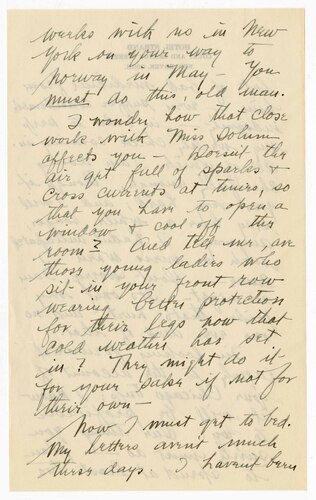 weeks with us in New
York on your way to
Norway in May – You
must do this, old man.
I wonder how that close
work with Miss Dohm
affects you – Doesn't the
air get full of sparks &
cross currents at times, so
that you have to open a
window & cool off the
room? And tell me, are
those young ladies who
sit in your front row
wearing better protection
for their legs now that
cold weather has set
in? They might do it
for your sakes if not for
their own –
Now I must get to bed.
My letters aren't much
these days. I haven't been